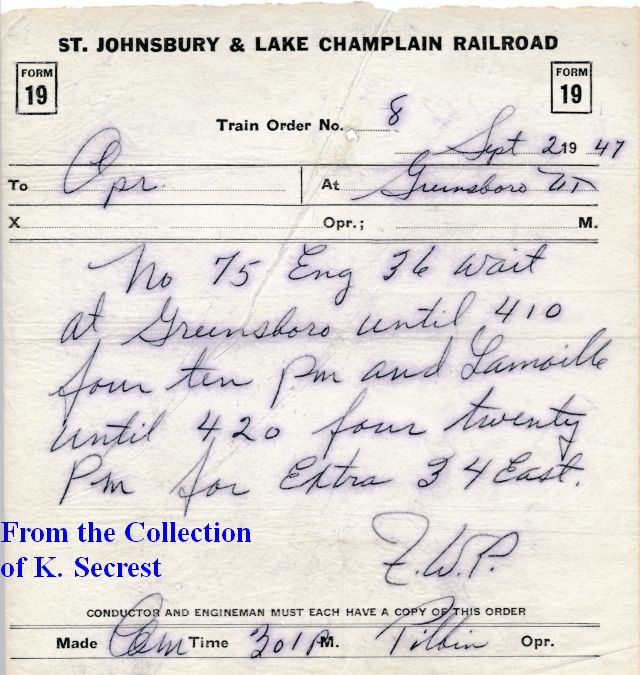 ST. JOHNSBURY & LAKE CHAMPLAIN RAILROAD
FORM 19
FORM 19
Train Order No. 8
Sept 2 19 47
To Opr. At Greensboro VT
X Opr.; M.
No 75 Eng 36 wait
at Greensboro until 410
four ten Pm and Lamoille
until 420 four twenty
Pm for Extra 34 East.
F.W.P.
From the Collection
of K. Secrest
CONDUCTOR AND ENGINEMAN MUST EACH HAVE A COPY OF THIS ORDER
Made Com Time 301 P M. Opr.